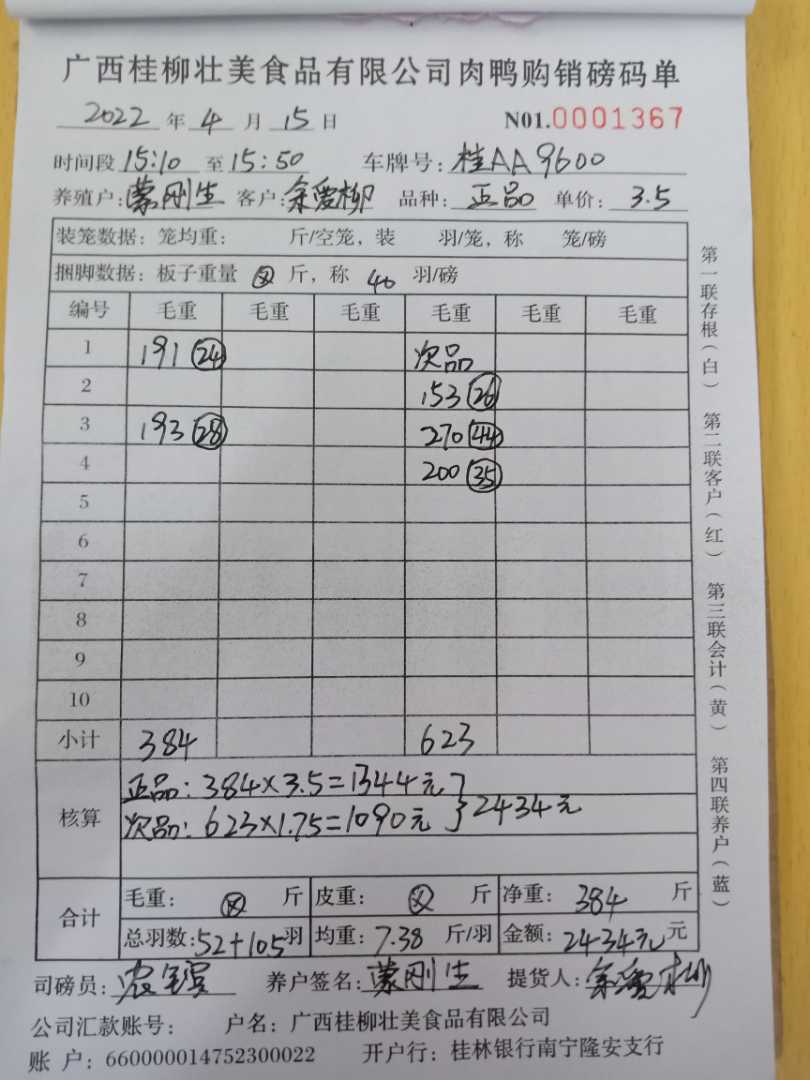 广西桂柳壮美食品有限公司肉鸭购销磅码单
2022年4月15日 N01.0001367
时间段15:10至15:50 车牌号:桂AA9600
养殖户:蒙刚生 客户:余爱柳 品种:正品 单价:3.5
装笼数据:笼均重: 斤/空笼,装 羽/笼,称 笼/磅
捆脚数据:板子重量 斤,称 40 羽/磅
编号 毛重 毛重 毛重 毛重 毛重 毛重
1 191(24) 次品
2 153(26)
3 193(28) 270(44)
4 200(35)
5
6
7
8
9
10
小计 384 623
核算
正品:384×3.5=1344元
次品:623×1.75=1090元 }2434元
合计
毛重: 斤 皮重: 斤 净重:384斤
总羽数:52+105羽 均重:7.38斤/羽 金额:2434元元
司磅员: 养户签名:蒙刚生 提货人:余爱柳
公司汇款账号: 户名:广西桂柳壮美食品有限公司
账 户:660000014752300022 开户行:桂林银行南宁隆安支行
第一联存根(白) 第二联客户(红) 第三联会计(黄) 第四联养户(蓝)